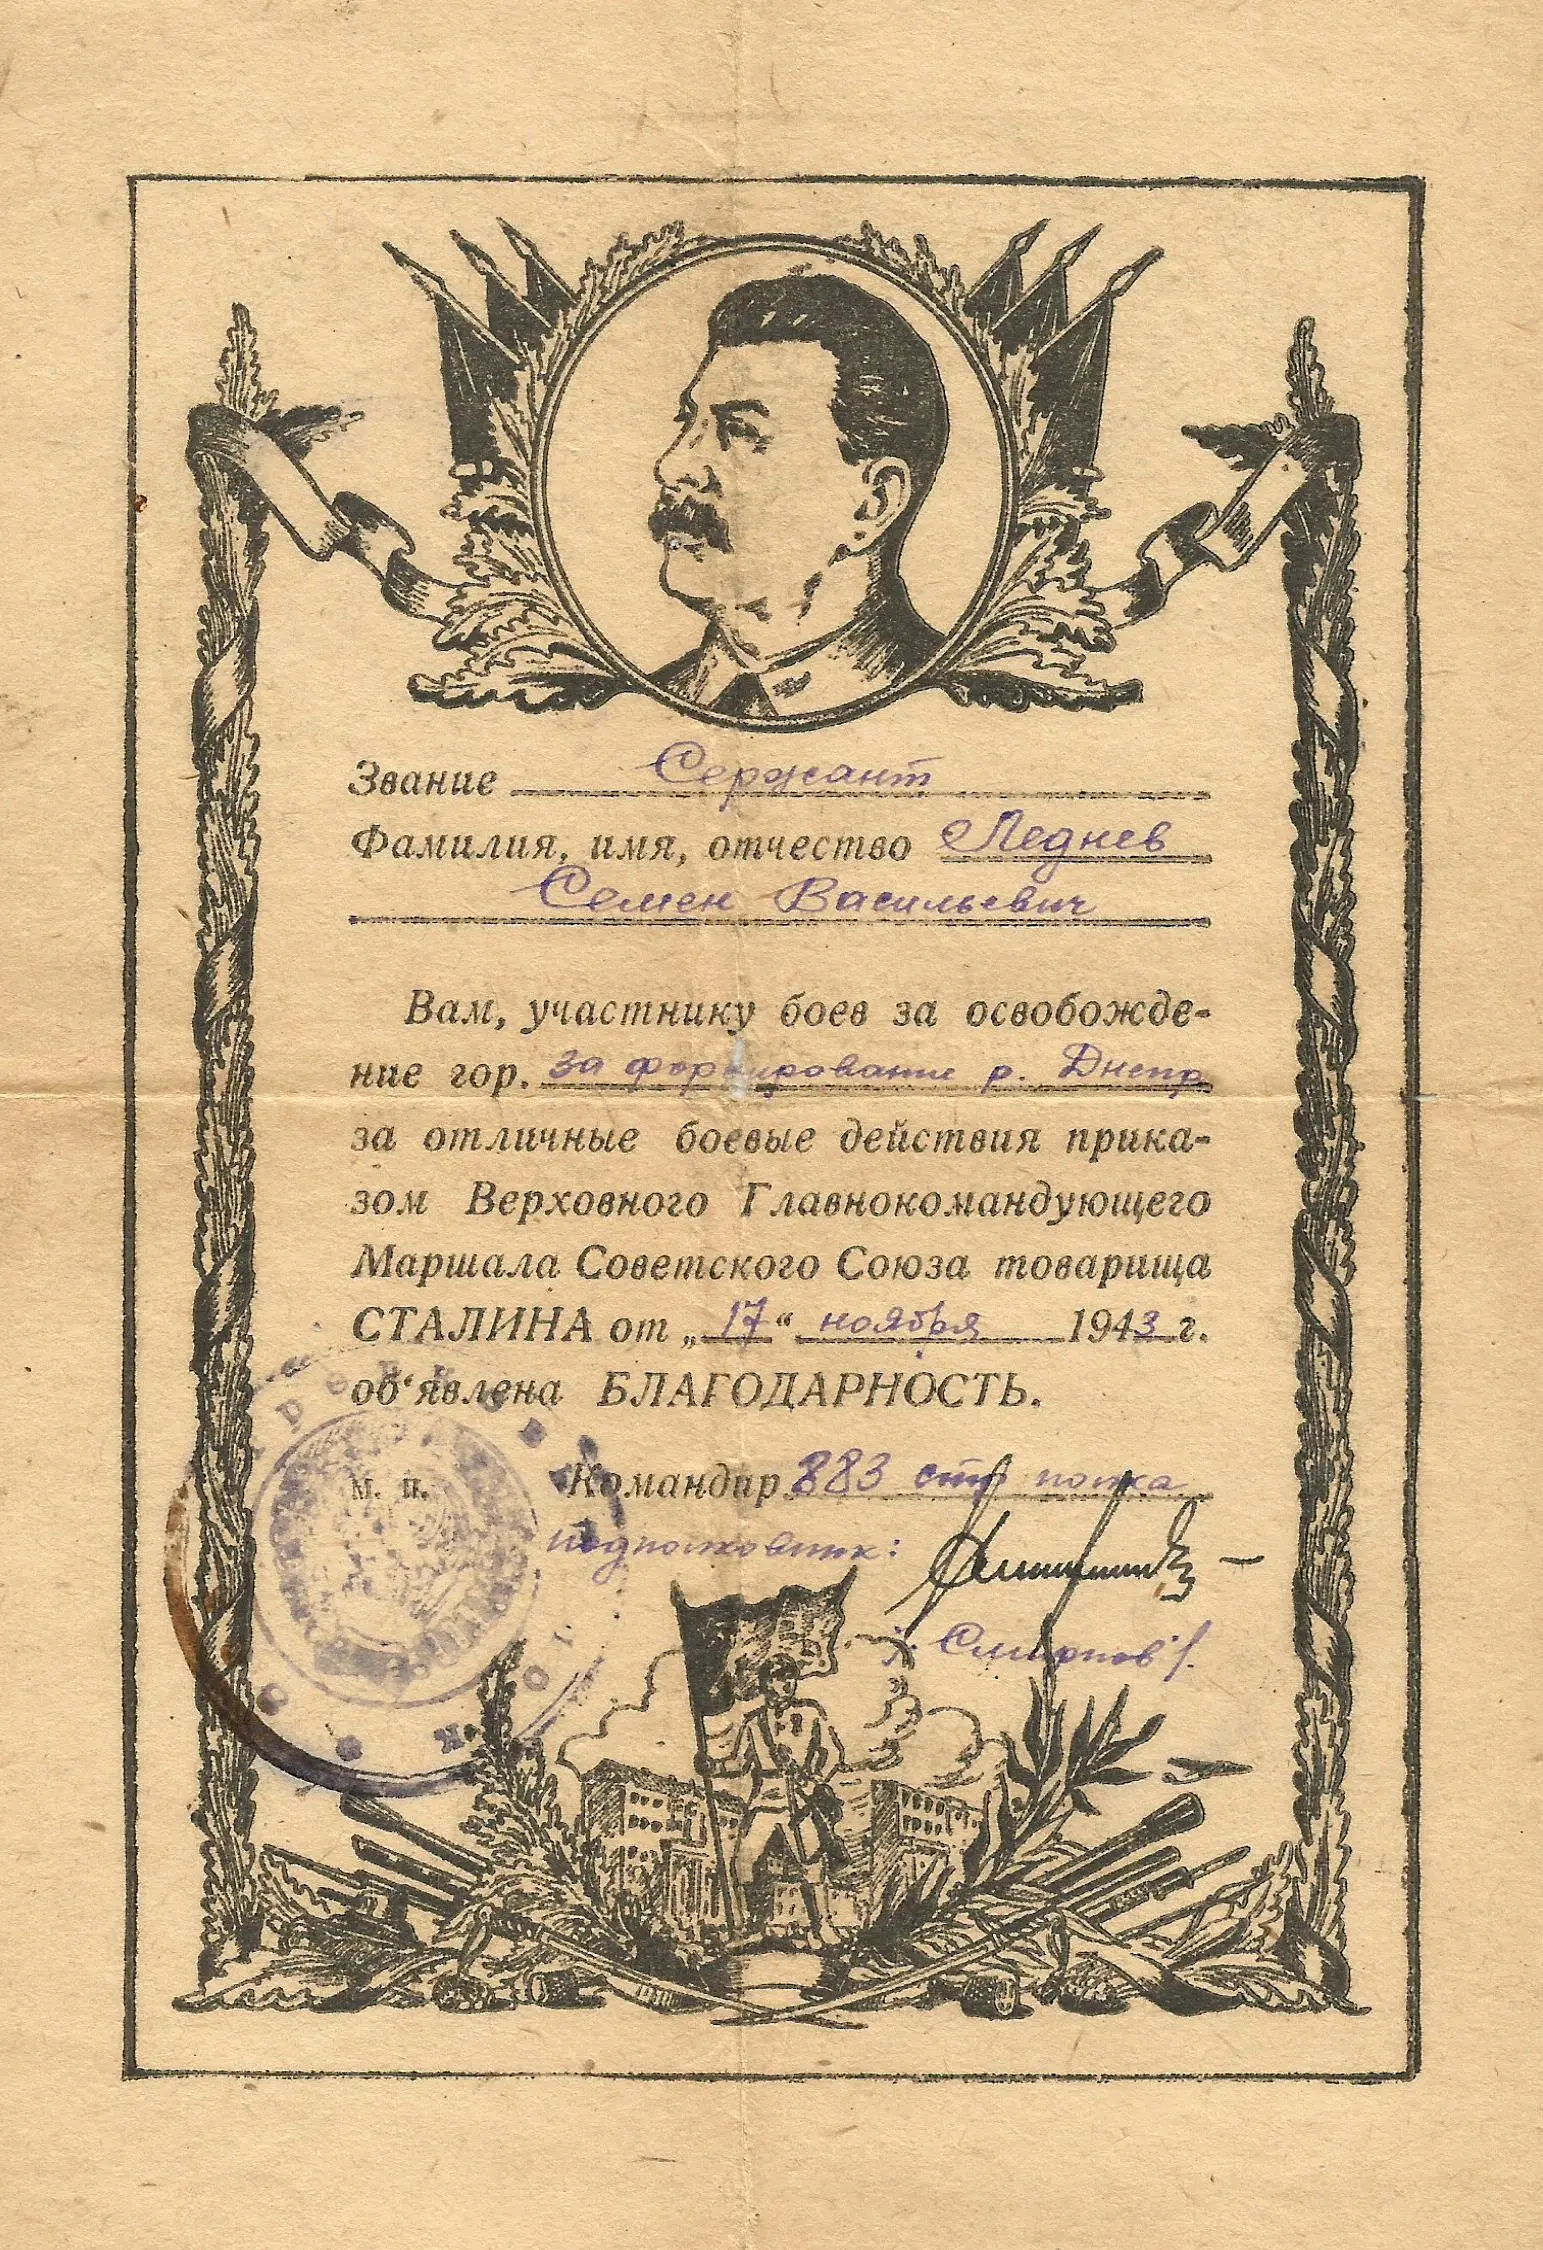 Звание Сержант
Фамилия, имя, отчество Леднев
Семен Васильевич
Вам, участнику боев за освобожде-
ние гор. за форсирование р. Днепр
за отличные боевые действия прика-
зом Верховного Главнокомандующего
Маршала Советского Союза товарища
СТАЛИНА от „17“ ноября 1943 г.
об'явлена БЛАГОДАРНОСТЬ.
М. П. Командир 883 стр полка
подполковник:
/. Смирнов /.